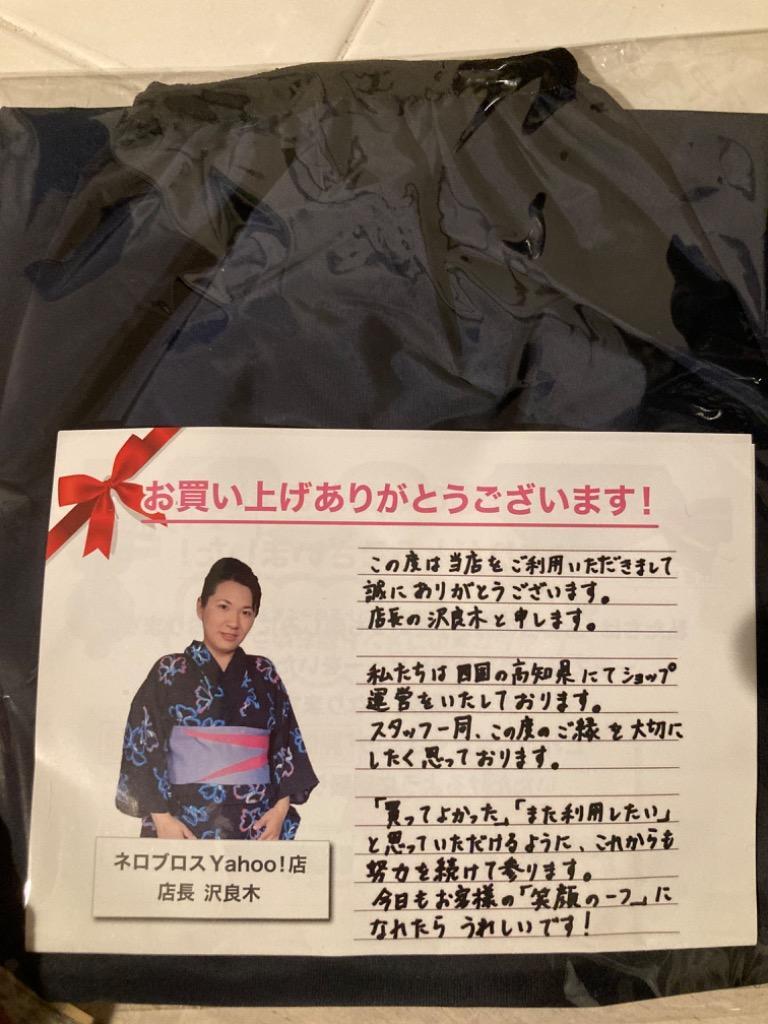 お買い上げありがとうございます!
この度は当店をご利用いただきまして
誠にありがとうございます。
店長の沢良木と申します。
私たちは四国の高知県にてショップ
運営をいたしております。
スタッフ一同、この度のご縁を大切に
したく思っております。
「買ってよかった」「また利用したい」
と思っていただけるように、これからも
努力を続けて参ります。
今日もお客様の「笑顔の一つ」に
なれたら うれしいです!
ネロブロスYahoo!店
店長 沢良木